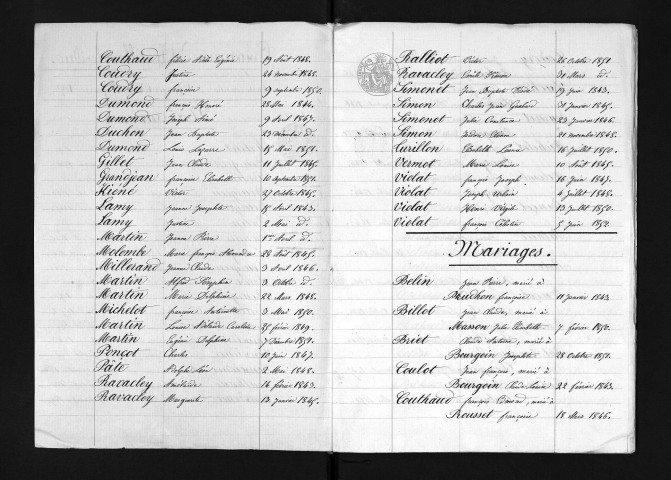 Couthaud félicie Adèle Eugénie 19 Août 1848.
Couery Justine 24 novembre 1848.
Couery françoise 9 septembre 1850.
Dumond françois Honoré 28 Mai 1844.
Dumond Joseph Aimé 9 Avril 1847.
Duchon Jean Baptiste 23 Décembre id.
Dumond Louis Lazarre 15 Mai 1851.
Gillet Jean Claude 11 Juillet 1845.
Grandjean françoise Elisabeth 10 septembre 1851.
Victor 27 octobre 1845.
Lamy Jeanne Josephte 15 Avril 1843.
Lamy Justine 2 Mai id.
Martin Jeanne Pierre 1er Avril id.
Molombe Marie françois Alexandre 28 Août 1845.
Millerand Jeanne Claude 3 Avril 1846.
Martin Alfred Séraphin 3 Octobre id.
Martin Marie Delphine 22 Mars 1848.
Michelot françoise Antoinette 3 Mai 1850.
Martin Louise Adélaïde Caroline 25 février 1849.
Martin Eugénie Delphine 7 Décembre 1851.
Ponçot Charles 10 Juin 1847.
Pâte Adolphe 2 Mai 1848.
Ravacley 14 février 1843.
Ravacley Marguerite 13 Janvier 1845.
Ralliot 26 Octobre 1851
Ravacley 31 Mars id.
Simonet Jean Baptiste 19 Juin 1843.
Simon Charles Jean 31 Janvier 1845.
Simonet Julie Constance 23 Janvier 1846.
Simon 21 novembre 1848.
Elisabeth Léonie 16 Juillet 1850.
Vermot Marie Louise 10 Août 1845.
Violat françois Joseph 16 Juin 1847.
Violat Joseph Urbain 4 Juillet 1848.
Violat Henri Virgile 13 Juillet 1850.
Violat françois Célestin 5 Juin 1852.
Mariages.
Belin Jean Pierre, marié à
Breuchon françoise 11 Janvier 1843
Billot Jean Claude, marié à
Masson Julie Elisabeth 7 février 1850.
Briet Claude Antoine, marié à
Bourgoin Josephte 28 Octobre 1851.
Coulot Jean françois, marié à
Bourgoin Claude Louise 22 février 1843.
Couthaud françois Edmond, marié à
Rousset françoise 18 Mars 1846.